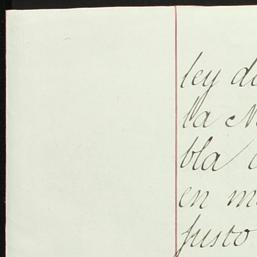 ley de
la M
bla
en m
justo